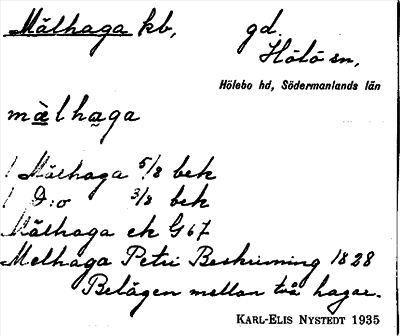 Mälhaga kb, gd.
Hölö sn,
Hölebo hd, Södermanlands län
mà̤lha̤ga
1 Mälhaga 5/8 bek
1 D:o 3/8 bek
Mälhaga ek G67
Melhaga Petri Beskrivning 1828
Belägen mellan två hagar.
KARL-ELIS NYSTEDT 1935